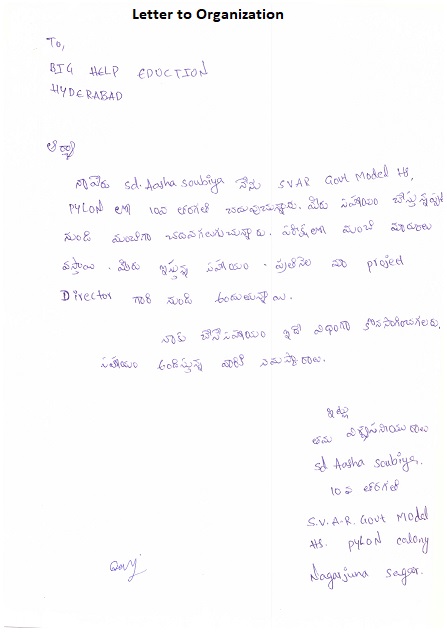 Letter to Organization
To,
BIG HELP EDUCTION
HYDERABAD
ఆర్యా
నా పేరు Sd. Aasha Soubiya నేను S V A R Govt Model HS,
PYLON లో 10వ తరగతి చదువుచున్నాను. మీరు సహాయం చేస్తున్నప్పటి
నుండి మంచిగా చదవగలుగుచున్నాను. పరీక్షలలో మంచి మార్కులు
వస్తాయి. మీరు ఇస్తున్న సహాయం. ప్రతినెల మా project
Director గారి నుండి అందుతున్నాయి.
నాకు చేసే సహాయం ఇదే విధంగా కొనసాగించగలరు.
సహాయం అందిస్తున్న వారికి నమస్కారాలు.
ఇట్లు
తమ విశ్వసనీయురాలు
Sd Aasha Soubiya.
10వ తరగతి
S.V.A.R. Govt Model
HS. PYLON colony
Nagarjuna sagar.